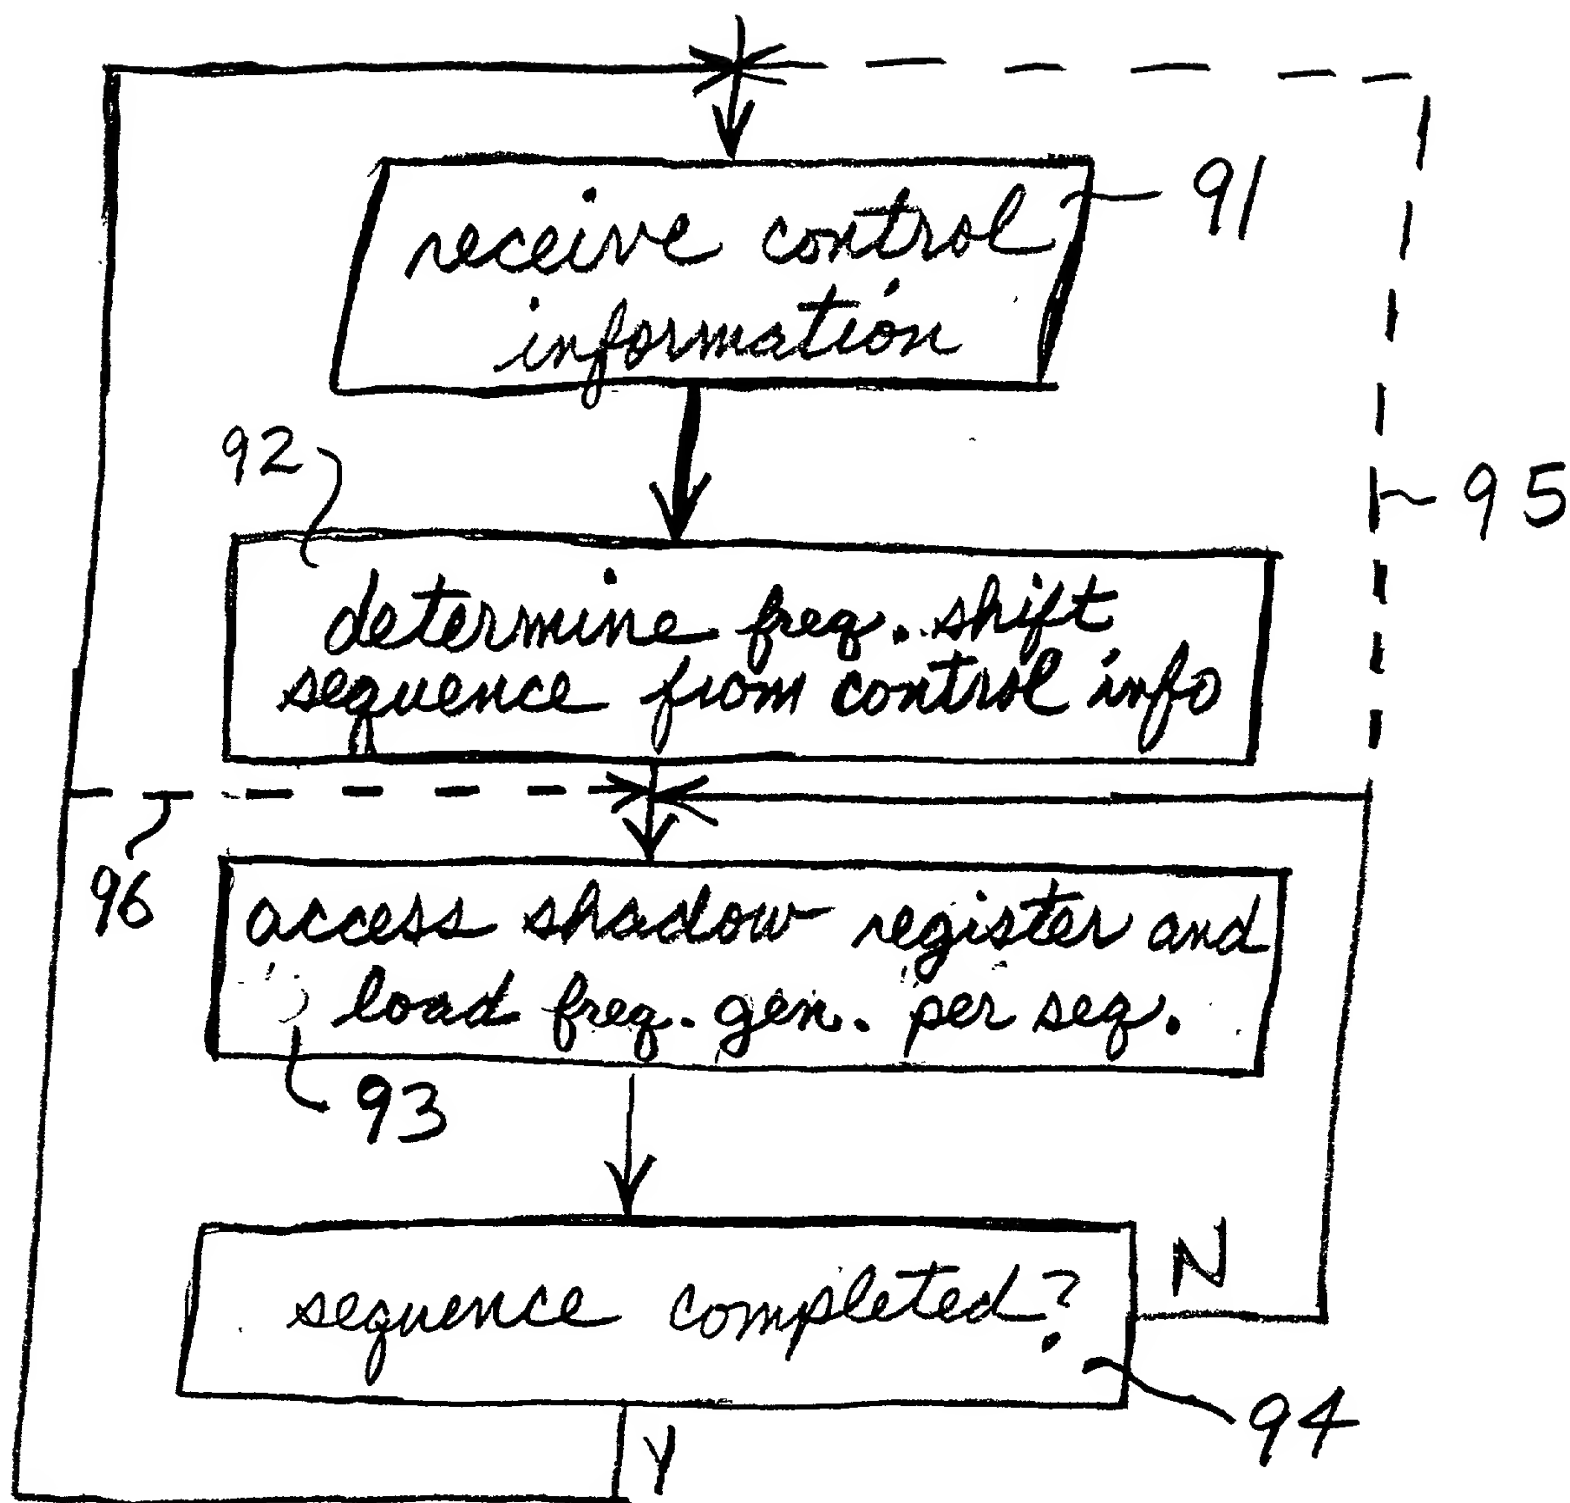 91
receive control
information
92
95
determine freq. shift
sequence from control info
96
access shadow register and
load freq. gen. per seq.
93
N
sequence completed?
94
Y